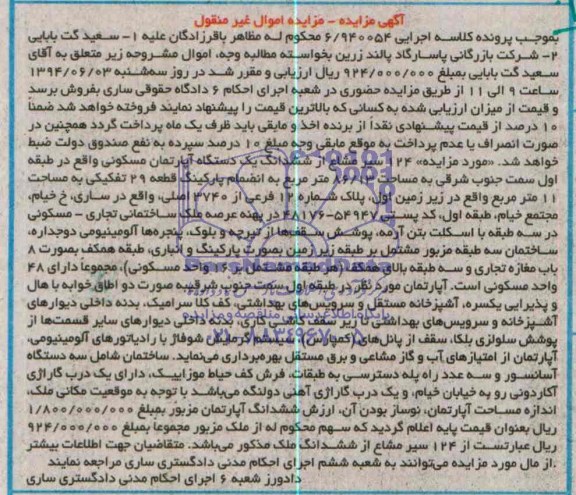 آگهی مزایده - مزایده اموال غیر منقول
بموجب پرونده کلاسه اجرایی ۶/۹۴۰۰۵۴ محکوم له مظاهر باقرزادگان علیه ۱- سعید گت بابایی
۲- شرکت بازرگانی پاسارگاد پالند زرین بخواسته مطالبه وجه، اموال مشروحه زیر متعلق به آقای
سعید گت بابایی بمبلغ ۹۲۴/۰۰۰/۰۰۰ ریال ارزیابی و مقرر شد در روز سه‌شنبه ۱۳۹۴/۰۶/۰۳
ساعت ۹ الی ۱۱ از طریق مزایده حضوری در شعبه اجرای احکام ۶ دادگاه حقوقی ساری بفروش برسد
و قیمت از میزان ارزیابی شده به کسانی که بالاترین قیمت را پیشنهاد نمایند فروخته خواهد شد ضمناً
۱۰ درصد از قیمت پیشنهادی نقداً از برنده اخذ و مابقی باید ظرف یک ماه پرداخت گردد همچنین در
صورت انصراف یا عدم پرداخت به موقع مابقی وجه مبلغ ۱۰ درصد سپرده به نفع صندوق دولت ضبط
خواهد شد. «مورد مزایده» ۱۲۴ سیر مشاع از ششدانگ یک دستگاه آپارتمان مسکونی واقع در طبقه
اول سمت جنوب شرقی به مساحت ۸۶/۱۲ متر مربع به انضمام پارکینگ قطعه ۲۹ تفکیکی به مساحت
۱۱ متر مربع واقع در زیر زمین اول، پلاک شماره ۱۲ فرعی از ۳۷۴۰ اصلی، واقع در ساری، خ خیام،
مجتمع خیام، طبقه اول، کد پستی ۵۴۹۴۷-۴۸۱۷۶ در پهنه عرصه ملک ساختمانی تجاری - مسکونی
در سه طبقه با اسکلت بتن آرمه، پوشش سقف‌ها از تیرچه و بلوک، پنجره‌ها آلومینیومی دوجداره،
ساختمان سه طبقه مزبور مشتمل بر طبقه زیرزمین بصورت پارکینگ و انباری، طبقه همکف بصورت ۸
باب مغازه تجاری و سه طبقه بالای همکف (هر طبقه مشتمل بر ۱۶ واحد مسکونی)، مجموعاً دارای ۴۸
واحد مسکونی است. آپارتمان مورد نظر در طبقه اول سمت جنوب شرقی به صورت دو اطاق خوابه با هال
و پذیرایی یکسره، آشپزخانه مستقل و سرویس‌های بهداشتی، کف کلا سرامیک، بدنه داخلی دیوارهای
آشپزخانه و سرویس‌های بهداشتی تا زیر سقف کاشی کاری، بدنه داخلی دیوارهای سایر قسمت‌ها از
پوشش سلولزی بلکا، سقف از پانل‌های (کمپارس)، سیستم گرمایش شوفاژ با رادیاتورهای آلومینیومی،
آپارتمان از امتیازهای آب و گاز مشاعی و برق مستقل بهره‌برداری می‌نماید. ساختمان شامل سه دستگاه
آسانسور و سه عدد راه پله دسترسی به طبقات، فرش کف حیاط موزاییک، دارای یک درب گاراژی
آکاردونی رو به خیابان خیام، و یک درب گاراژی آهنی دولنگه می‌باشد با توجه به موقعیت مکانی ملک،
اندازه مساحت آپارتمان، نوساز بودن آن، ارزش ششدانگ آپارتمان مزبور بمبلغ ۱/۸۰۰/۰۰۰/۰۰۰
ریال بعنوان قیمت پایه اعلام گردید که سهم محکوم له از ملک مزبور مجموعاً بمبلغ ۹۲۴/۰۰۰/۰۰۰
ریال عبارتست از ۱۲۴ سیر مشاع از ششدانگ ملک مذکور می‌باشد. متقاضیان جهت اطلاعات بیشتر
.از مال مورد مزایده می‌توانند به شعبه ششم اجرای احکام مدنی دادگستری ساری مراجعه نمایند
دادورز شعبه ۶ اجرای احکام مدنی دادگستری ساری